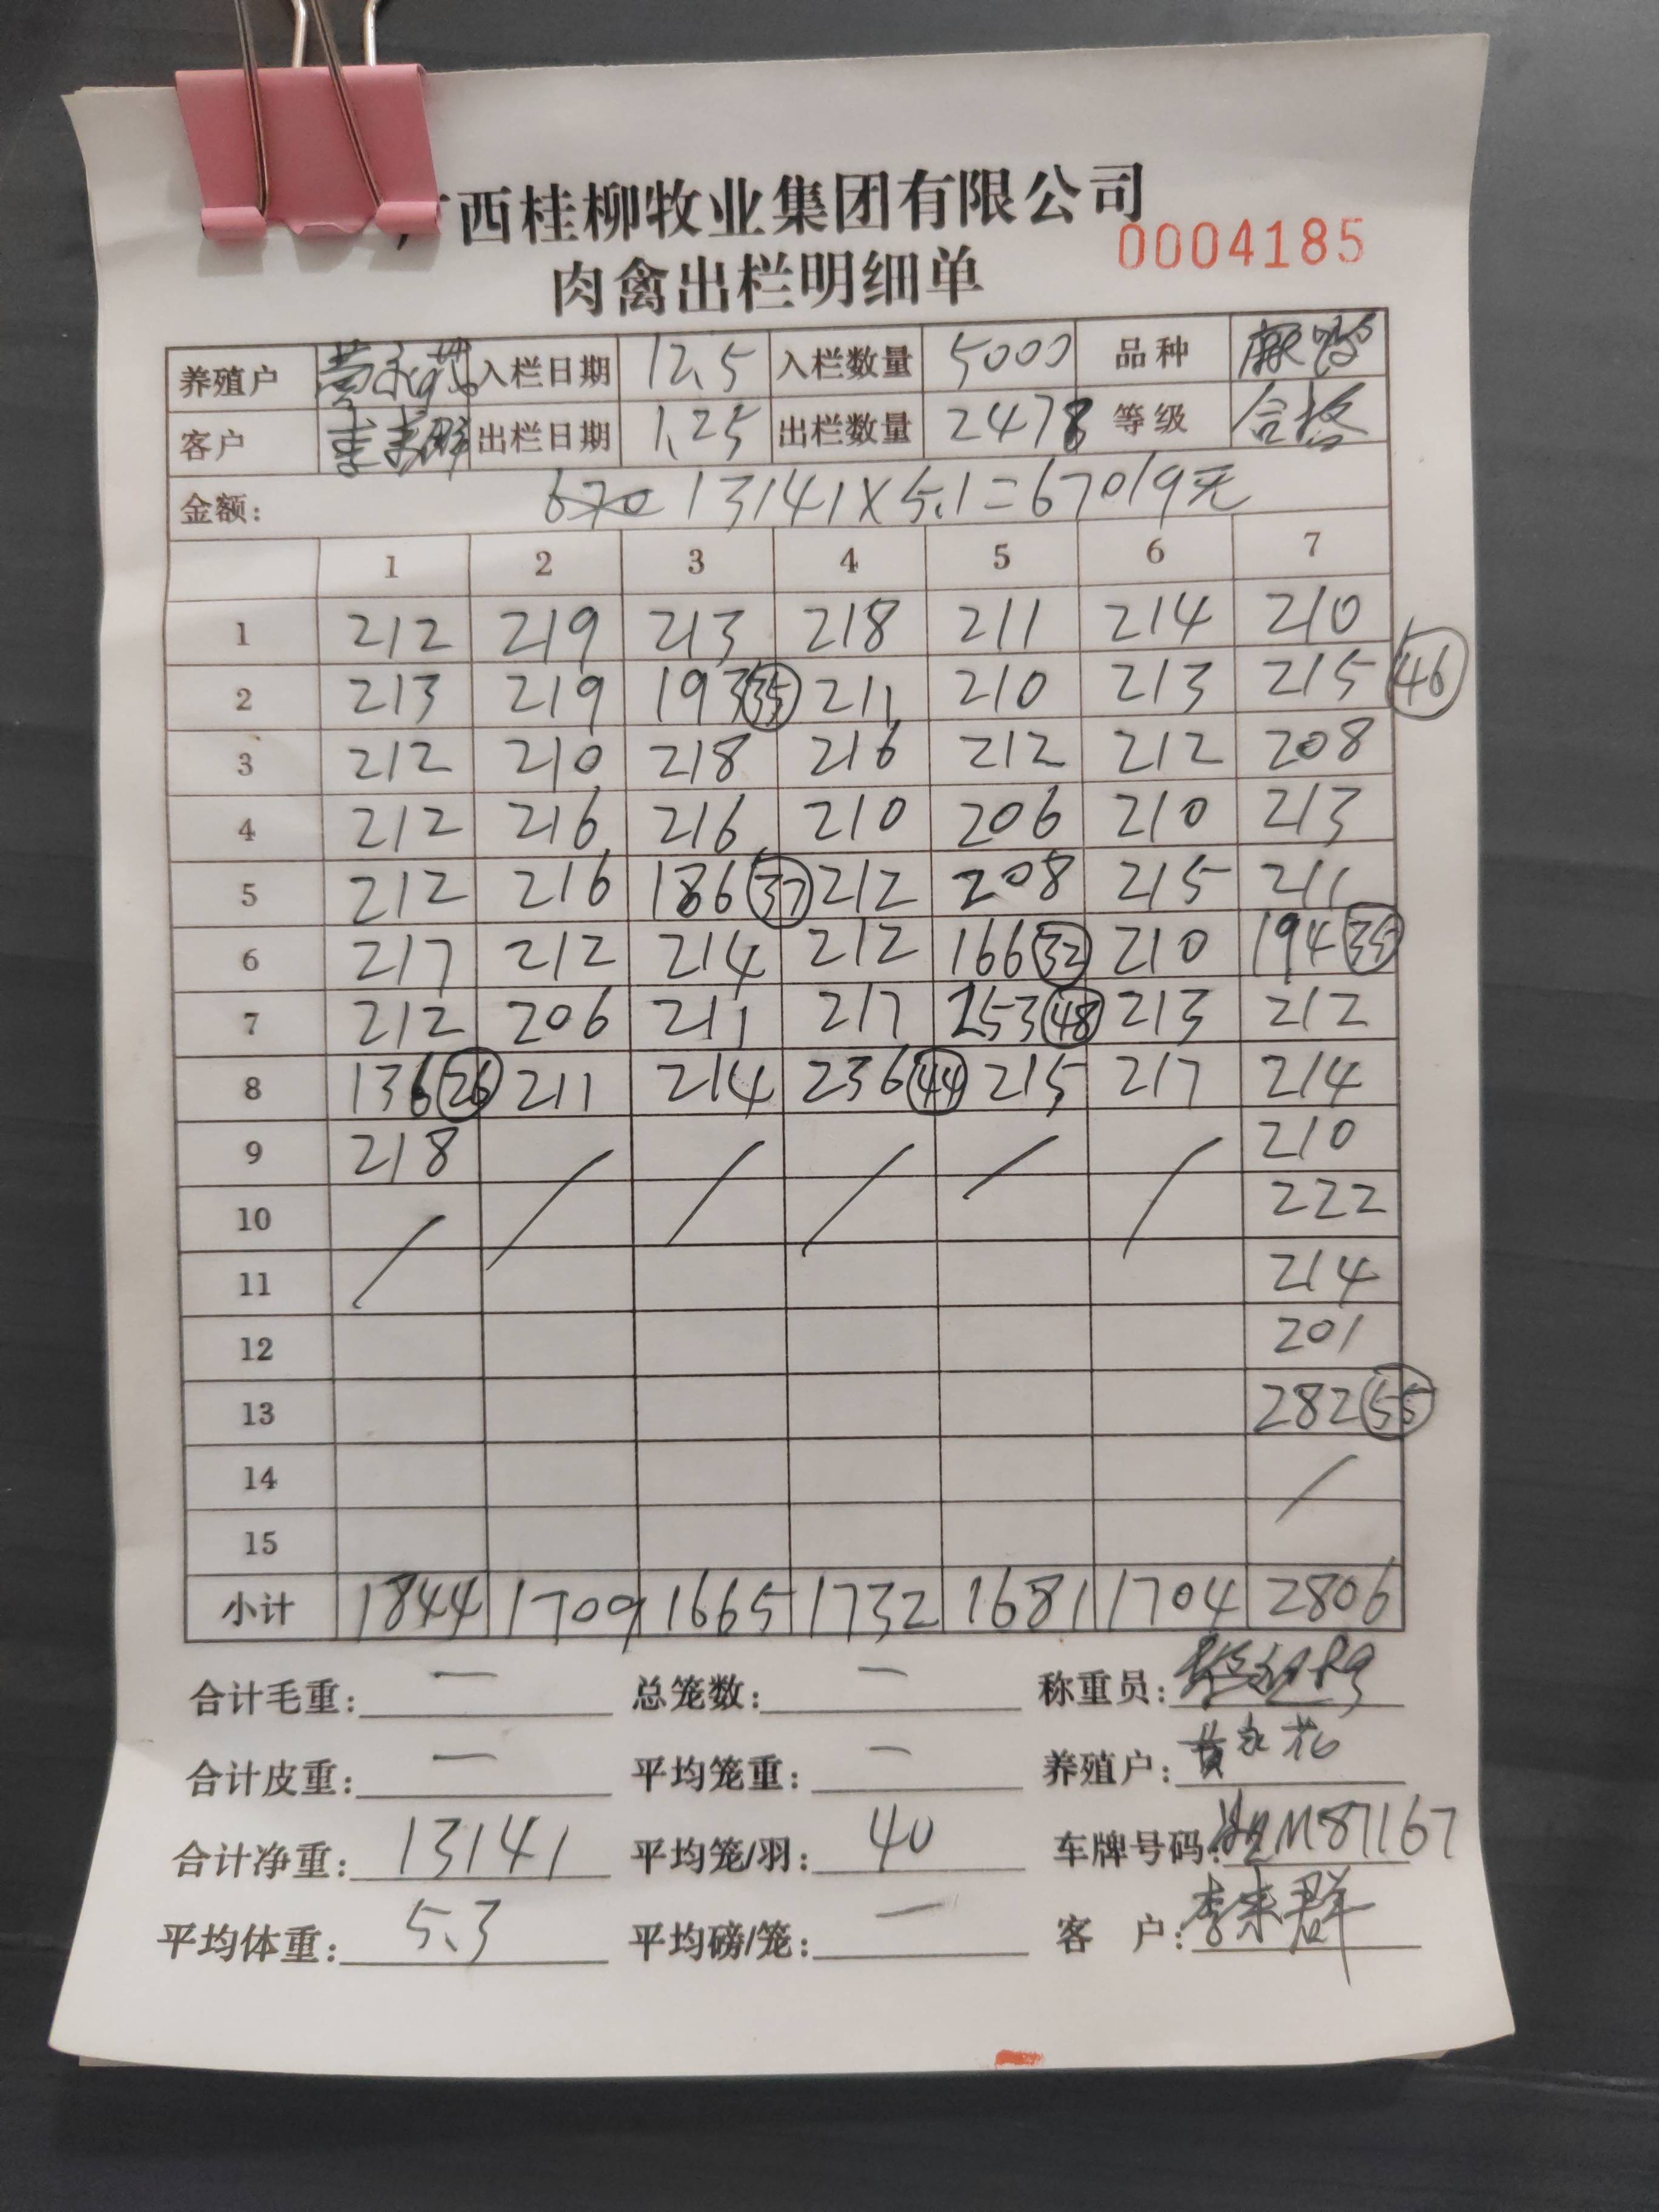 西桂柳牧业集团有限公司
0004185
肉禽出栏明细单
养殖户 入栏日期 12.5 入栏数量 5000 品种 麻鸭
客户 李来群 出栏日期 1.25 出栏数量 2478 等级 合格
金额: 13141×5.1=67019元
1 2 3 4 5 6 7
1 212 219 213 218 211 214 210
2 213 219 193 35 211 210 213 215 46
3 212 210 218 216 212 212 208
4 212 216 216 210 206 210 213
5 212 216 186 37 212 208 215 211
6 217 212 214 212 166 32 210 194 35
7 212 206 211 217 253 48 213 212
8 136 26 211 214 236 44 215 217 214
9 218 / / / / / 210
10 / 222
11 214
12 201
13 282 55
14 /
15
小计 1844 1709 1665 1732 1681 1704 2806
合计毛重: — 总笼数: — 称重员:
合计皮重: — 平均笼重: — 养殖户: 黄永花
合计净重: 13141 平均笼/羽: 40 车牌号码: M87167
平均体重: 5.3 平均磅/笼: — 客 户: 李来群